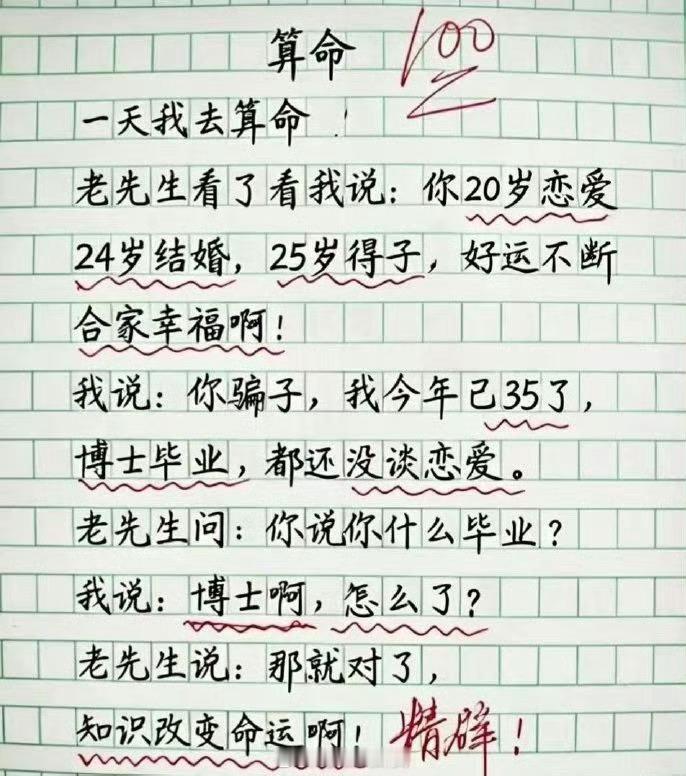 算命 100
一天我去算命
老先生看了看我说：你20岁恋爱
24岁结婚，25岁得子，好运不断
合家幸福啊！
我说：你骗子，我今年已35了，
博士毕业，都还没谈恋爱。
老先生问：你说你什么毕业？
我说：博士啊，怎么了？
老先生说：那就对了，
知识改变命运啊！精辟！